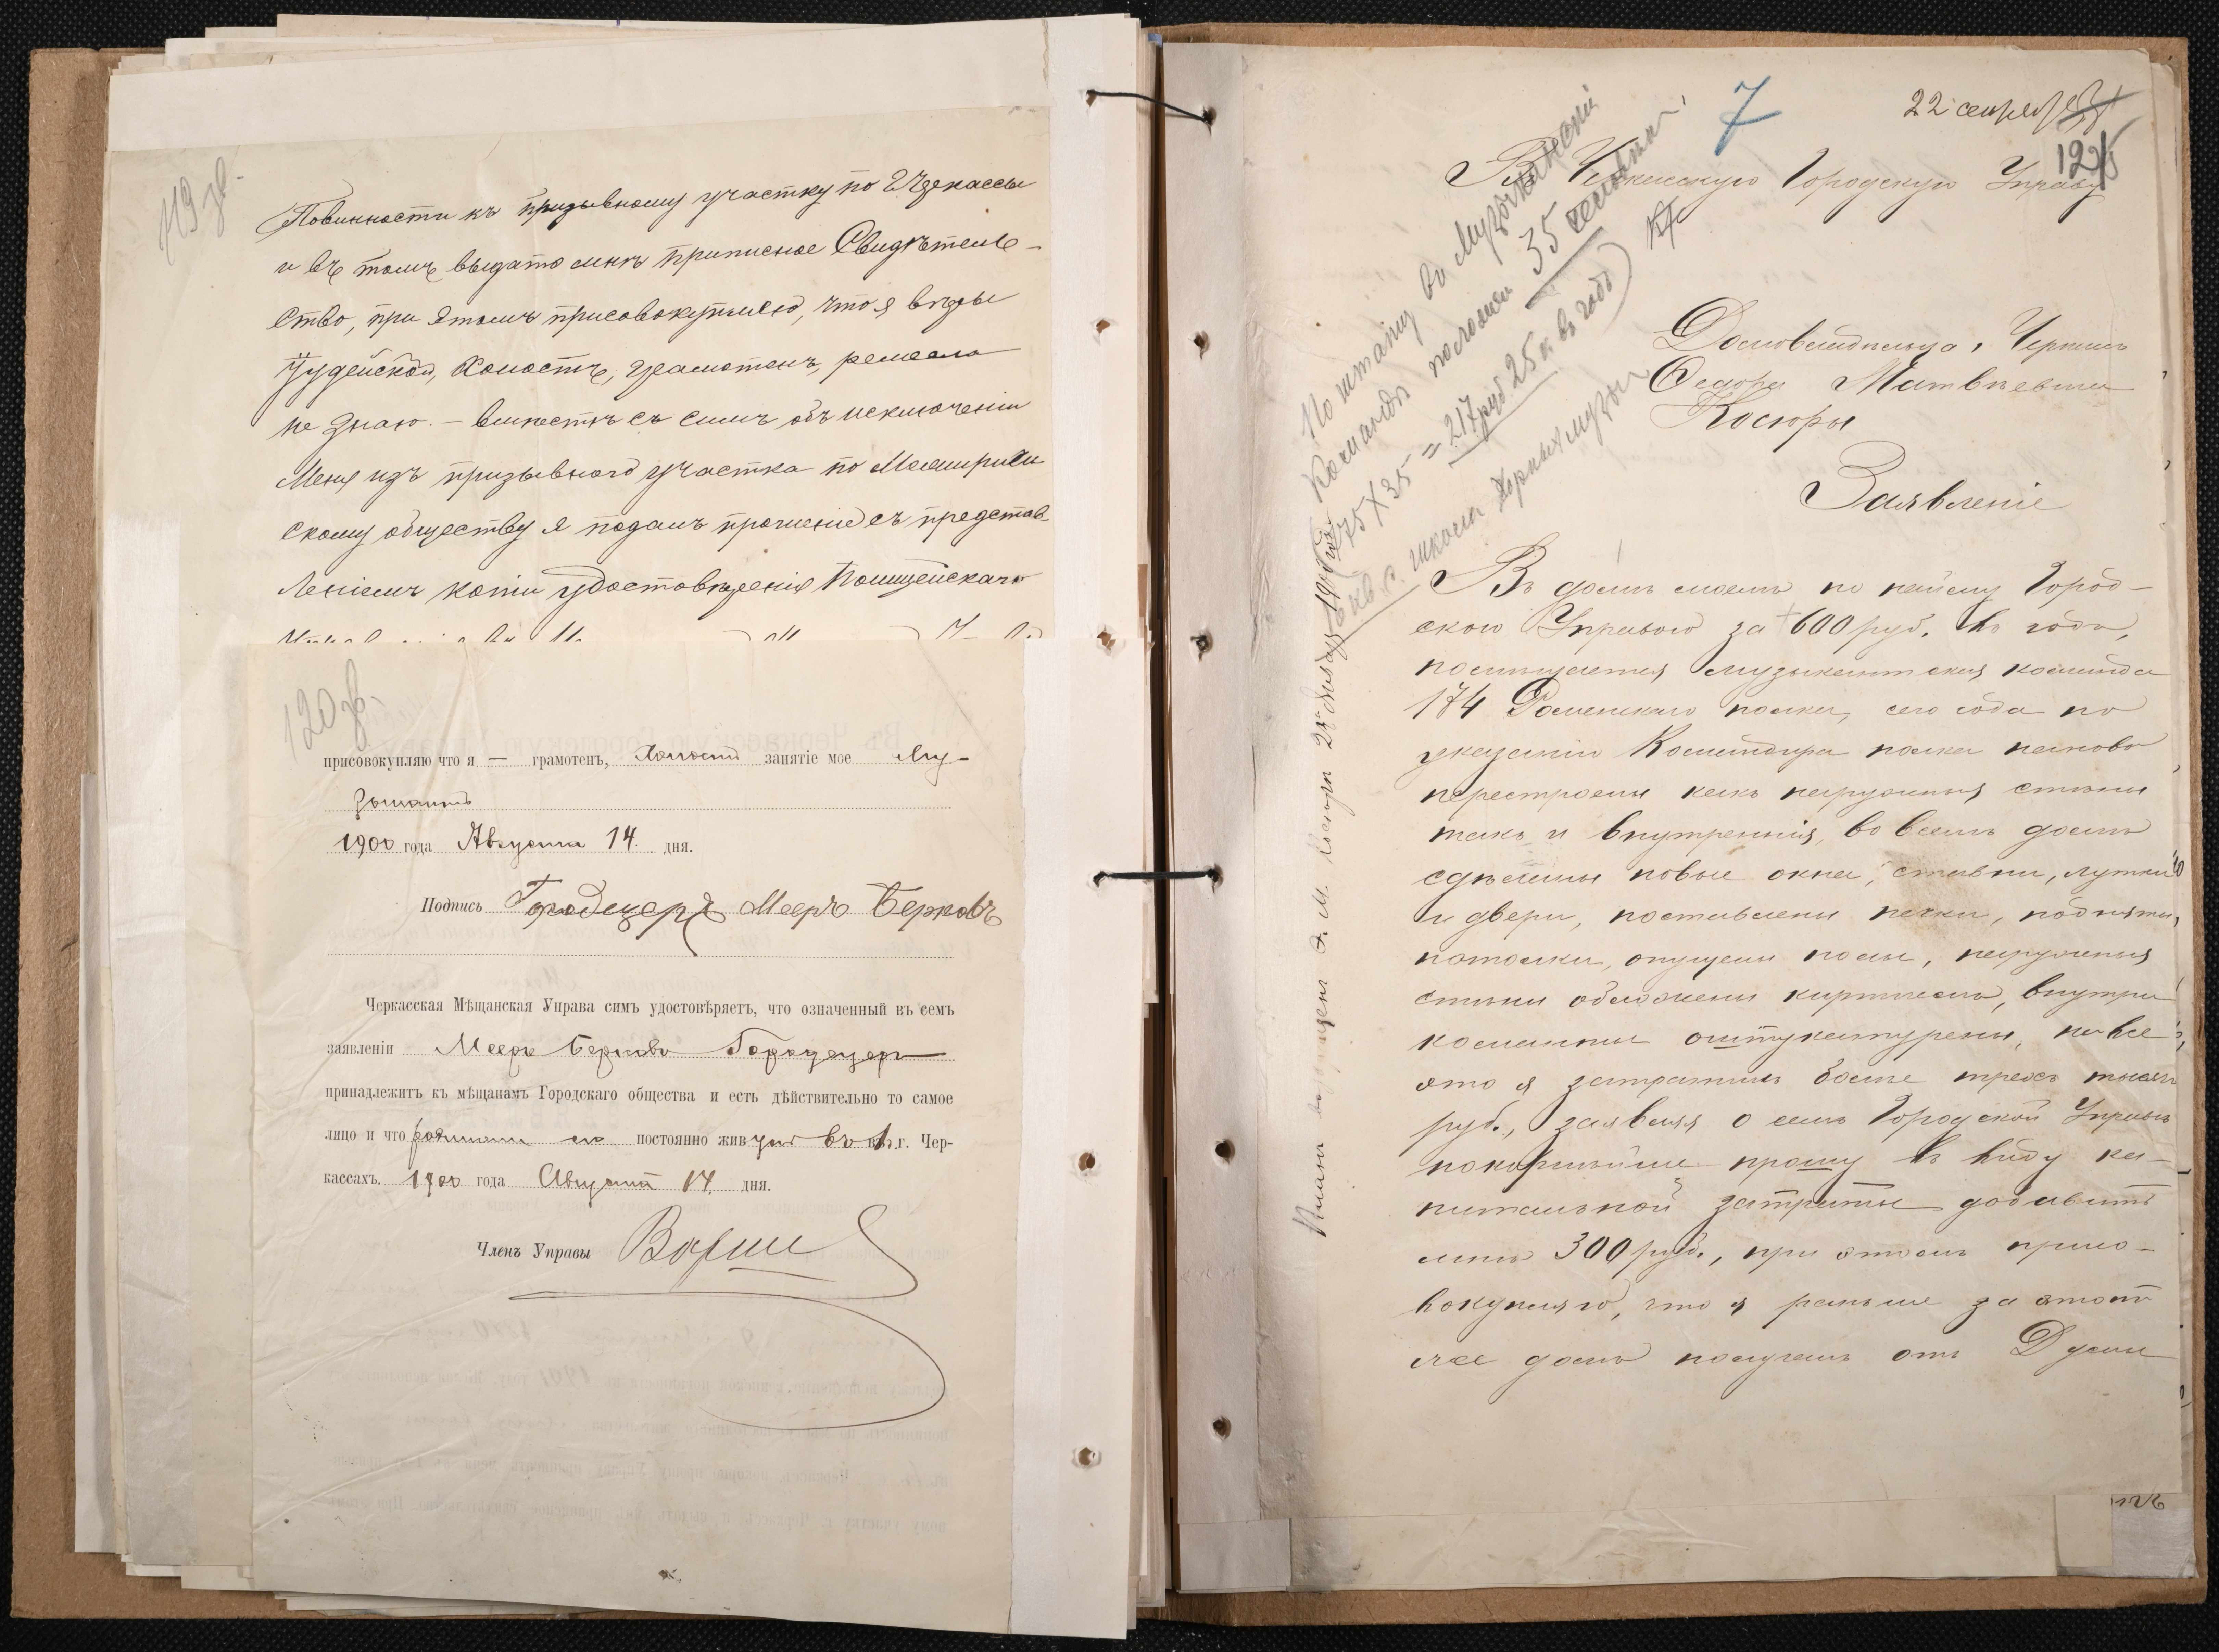 119 зв.
Повинности къ призывному участку по г Черкассы
и въ томъ выдать мнѣ приписное Свидѣтель-
ство, при этомъ присовокупляю, что я вѣры
Іудейской, холостъ, грамотенъ, ремесла
не знаю. – вмѣстѣ съ симъ объ исключеніи
меня изъ призывного участка по Мошнин
скому обществу я подалъ прошеніе съ представ-
леніемъ копіи удостовѣренія Полицейскаго
120 зв.
присовокупляю что я — грамотенъ, Холостъ занятіе мое Му-
зыкантъ
1900 года Августа 14 дня.
Подпись Городецеръ Мееръ Берковъ
Черкасская Мѣщанская Управа симъ удостовѣряетъ, что означенный въ семъ
заявленіи Мееръ Берковъ Городецеръ
принадлежитъ къ мѣщанамъ Городскаго общества и есть дѣйствительно то самое
лицо и что постоянно жив въ г. Чер-
кассахъ. 1900 года Августа 14 дня.
Членъ Управы
7
22 сентября
Въ Черкасскую Городскую Управу
Домовладѣльца г. Черкасъ
Федора Матвѣевича
Косюры
Заявленіе
Въ домѣ моемъ по найму Город-
скою Управою за 600 руб. въ годъ,
помѣщается музыкантская команда
174 Роменскаго полка, сего года по
указанію Командира полка наново
перестроены какъ наружныя стѣны
такъ и внутреннія, во всемъ домѣ
сдѣланы новые окна, ставни, лутки
и двери, поставлены печки, подняты
потолки, опущены полы, наружныя
стѣны обложены кирпичемъ, внутри
комнаты оштукатурены, на все
это я затратилъ болѣе трехъ тысячъ
руб., заявляя о семъ Городской Управѣ
покорнѣйше прошу въ виду ка-
питальной затраты добавить
мнѣ 300 руб., при этомъ присо-
вокупляю, что я раньше за этотъ
же домъ получалъ отъ Думы
По штату въ Музыкантской
Командѣ положено 35 человѣкъ
X 35 = 217 руб 25 к въ годъ)